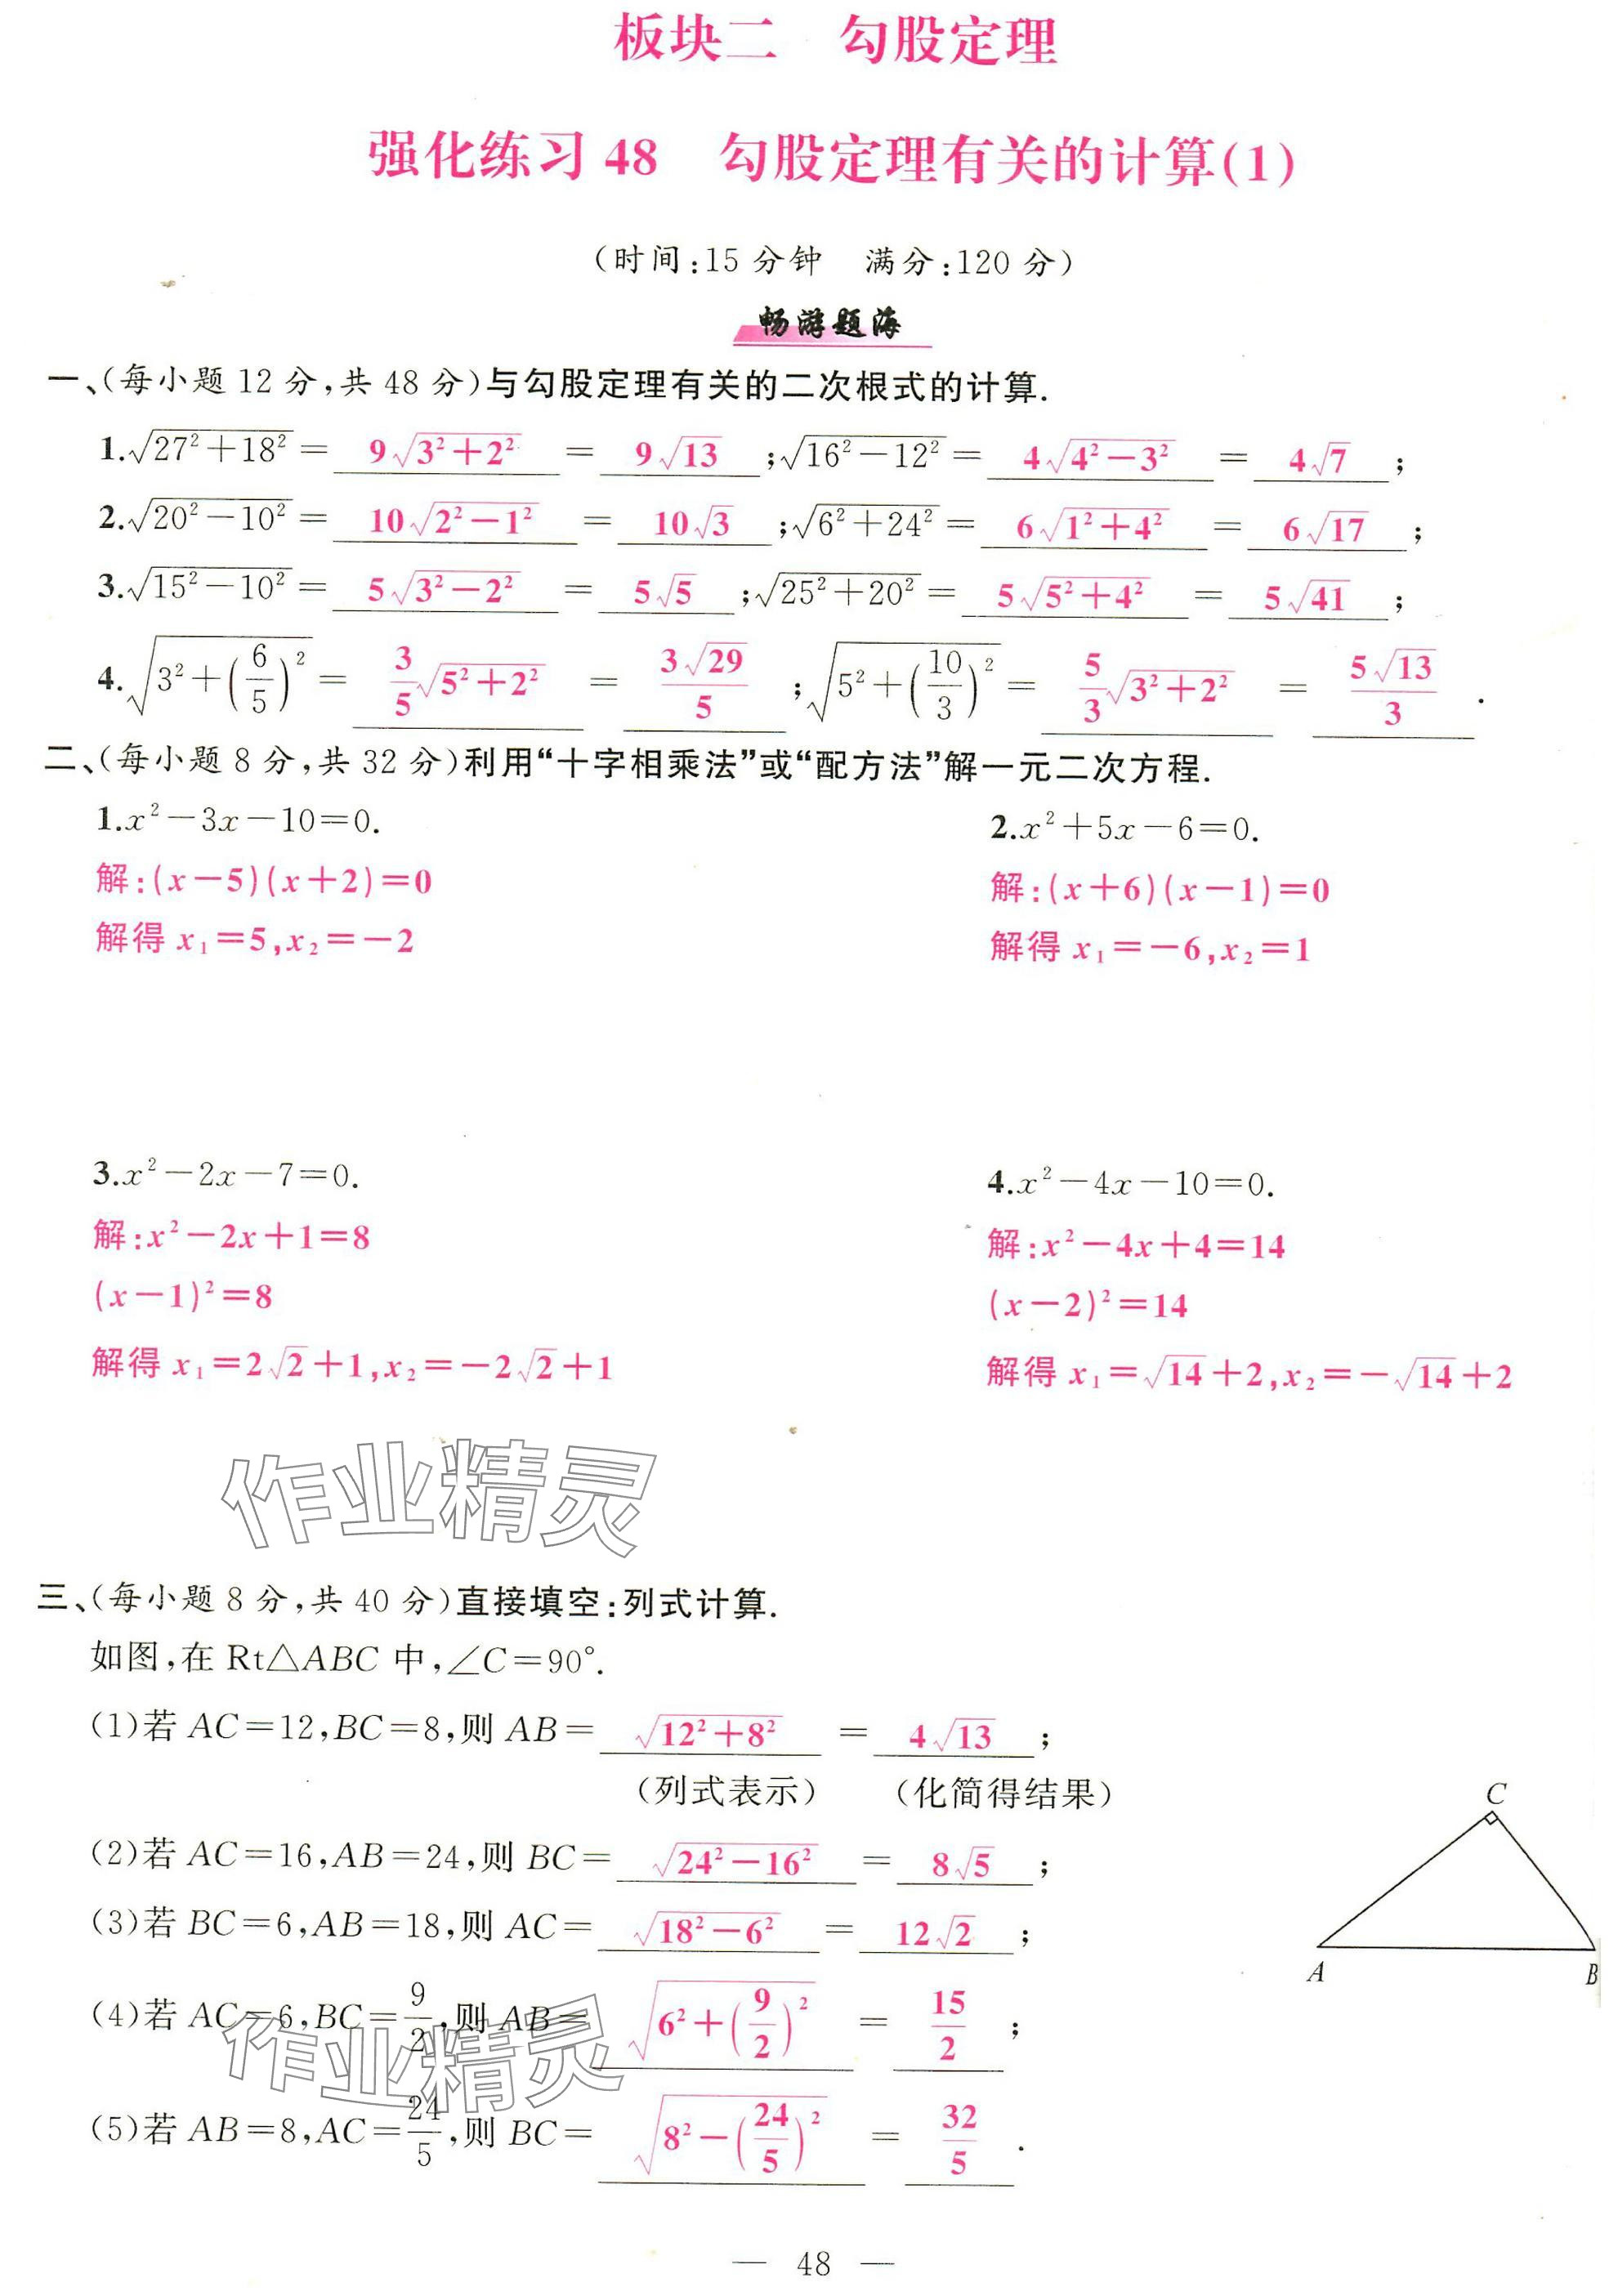 板块二 勾股定理
强化练习 48 勾股定理有关的计算(1)
(时间:15 分钟 满分:120 分)
畅游题海
一、(每小题 12 分,共 48 分)与勾股定理有关的二次根式的计算.
1.√(27²+18²)= 9√(3²+2²) = 9√13 ;√(16²−12²)= 4√(4²−3²) = 4√7 ;
2.√(20²−10²)= 10√(2²−1²) = 10√3 ;√(6²+24²)= 6√(1²+4²) = 6√17 ;
3.√(15²−10²)= 5√(3²−2²) = 5√5 ;√(25²+20²)= 5√(5²+4²) = 5√41 ;
4.√(3²+(6/5)²)= 3/5√(5²+2²) = 3√29/5 ;√(5²+(10/3)²)= 5/3√(3²+2²) = 5√13/3 .
二、(每小题 8 分,共 32 分)利用“十字相乘法”或“配方法”解一元二次方程.
1.x²−3x−10=0. 2.x²+5x−6=0.
解:(x−5)(x+2)=0 解:(x+6)(x−1)=0
解得 x₁=5,x₂=−2 解得 x₁=−6,x₂=1
3.x²−2x−7=0. 4.x²−4x−10=0.
解:x²−2x+1=8 解:x²−4x+4=14
(x−1)²=8 (x−2)²=14
解得 x₁=2√2+1,x₂=−2√2+1 解得 x₁=√14+2,x₂=−√14+2
作业精灵
三、(每小题 8 分,共 40 分)直接填空:列式计算.
如图,在 Rt△ABC 中,∠C=90°.
(1)若 AC=12,BC=8,则 AB= √(12²+8²) = 4√13 ;
(列式表示) (化简得结果)
(2)若 AC=16,AB=24,则 BC= √(24²−16²) = 8√5 ;
(3)若 BC=6,AB=18,则 AC= √(18²−6²) = 12√2 ;
(4)若 AC=6,BC=9/2,则 AB= √(6²+(9/2)²) = 15/2 ;
(5)若 AB=8,AC=24/5,则 BC= √(8²−(24/5)²) = 32/5 .
C
A B
作业精灵
— 48 —